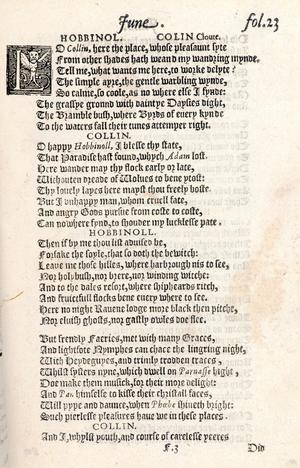 June.
fol.23
HOBBINOL. COLIN Cloute.
LO Collin, here the place, whose pleasaunt syte
From other shades hath weand my wandring mynde.
Tell me, what wants me here, to worke delyte?
The simple ayre, the gentle warbling wynde,
So calme, so coole, as no where else I fynde:
The grassye ground with daintye Daysies dight,
The Bramble bush, where Byrds of euery kynde
To the waters fall their tunes attemper right.
COLLIN.
O happy Hobbinoll, I blesse thy state,
That Paradise hast found, whych Adam lost.
Here wander may thy flock early or late,
Withouten dreade of Wolues to bene ytost:
Thy louely layes here mayst thou freely boste.
But I vnhappy man, whom cruell fate,
And angry Gods pursue from coste to coste,
Can nowhere fynd, to shouder my lucklesse pate.
HOBBINOLL.
Then if by me thou list aduised be,
Forsake the soyle, that so doth the bewitch:
Leaue me those hilles, where harbrough nis to see,
Nor holybush, nor brere, nor winding witche:
And to the dales resort, where shipheards ritch,
And fruictfull flocks bene euery where to see.
Here no night Rauene lodge more black then pitche,
Nor eluish ghosts, nor gastly owles doe flee.
But frendly Faeries, met with many Graces,
And lightfote Nymphes can chace the lingring night,
With Heydeguyes, and trimly trodden traces,
Whilst systers nyne, which dwell on Parnasse hight,
Doe make them musick, for their more delight:
And Pan himselfe to kisse their christall faces,
Will pype and daunce, when Phœbe shineth bright:
Such pierlesse pleasures haue we in these places.
COLLIN.
And I, whylst youth, and course of carelesse yeeres
F.3
Did